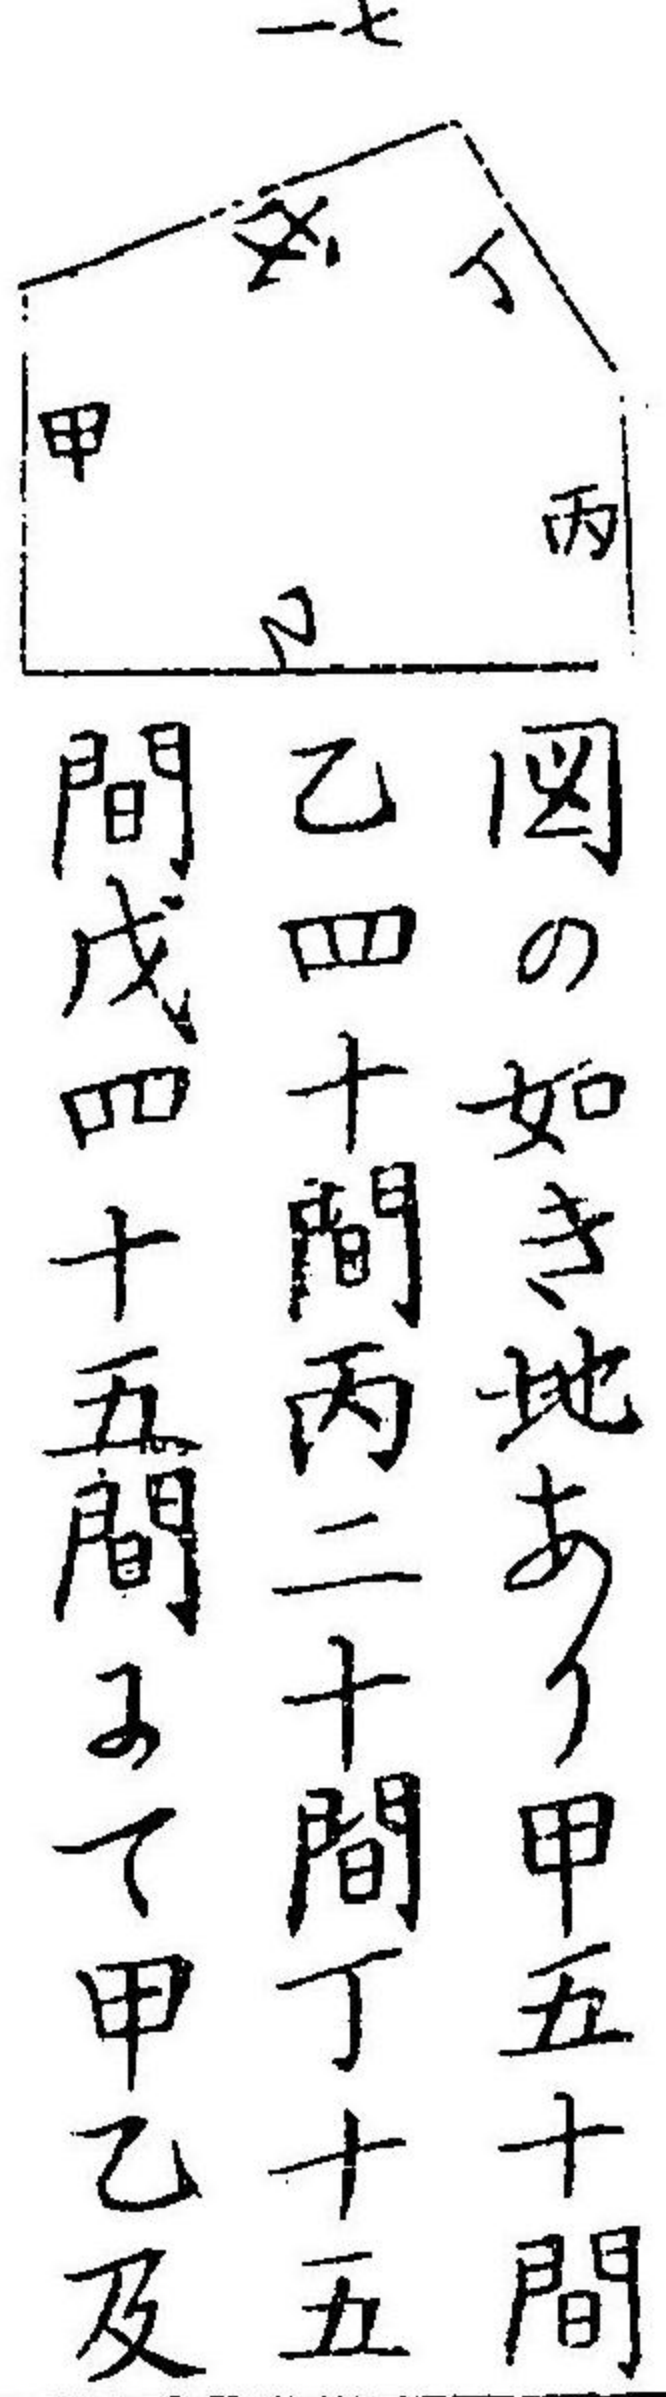 一七
戊
丁
甲
丙
乙
図の如き地あり甲五十間
乙四十間丙二十間丁十五
間戊四十五間にて甲乙及